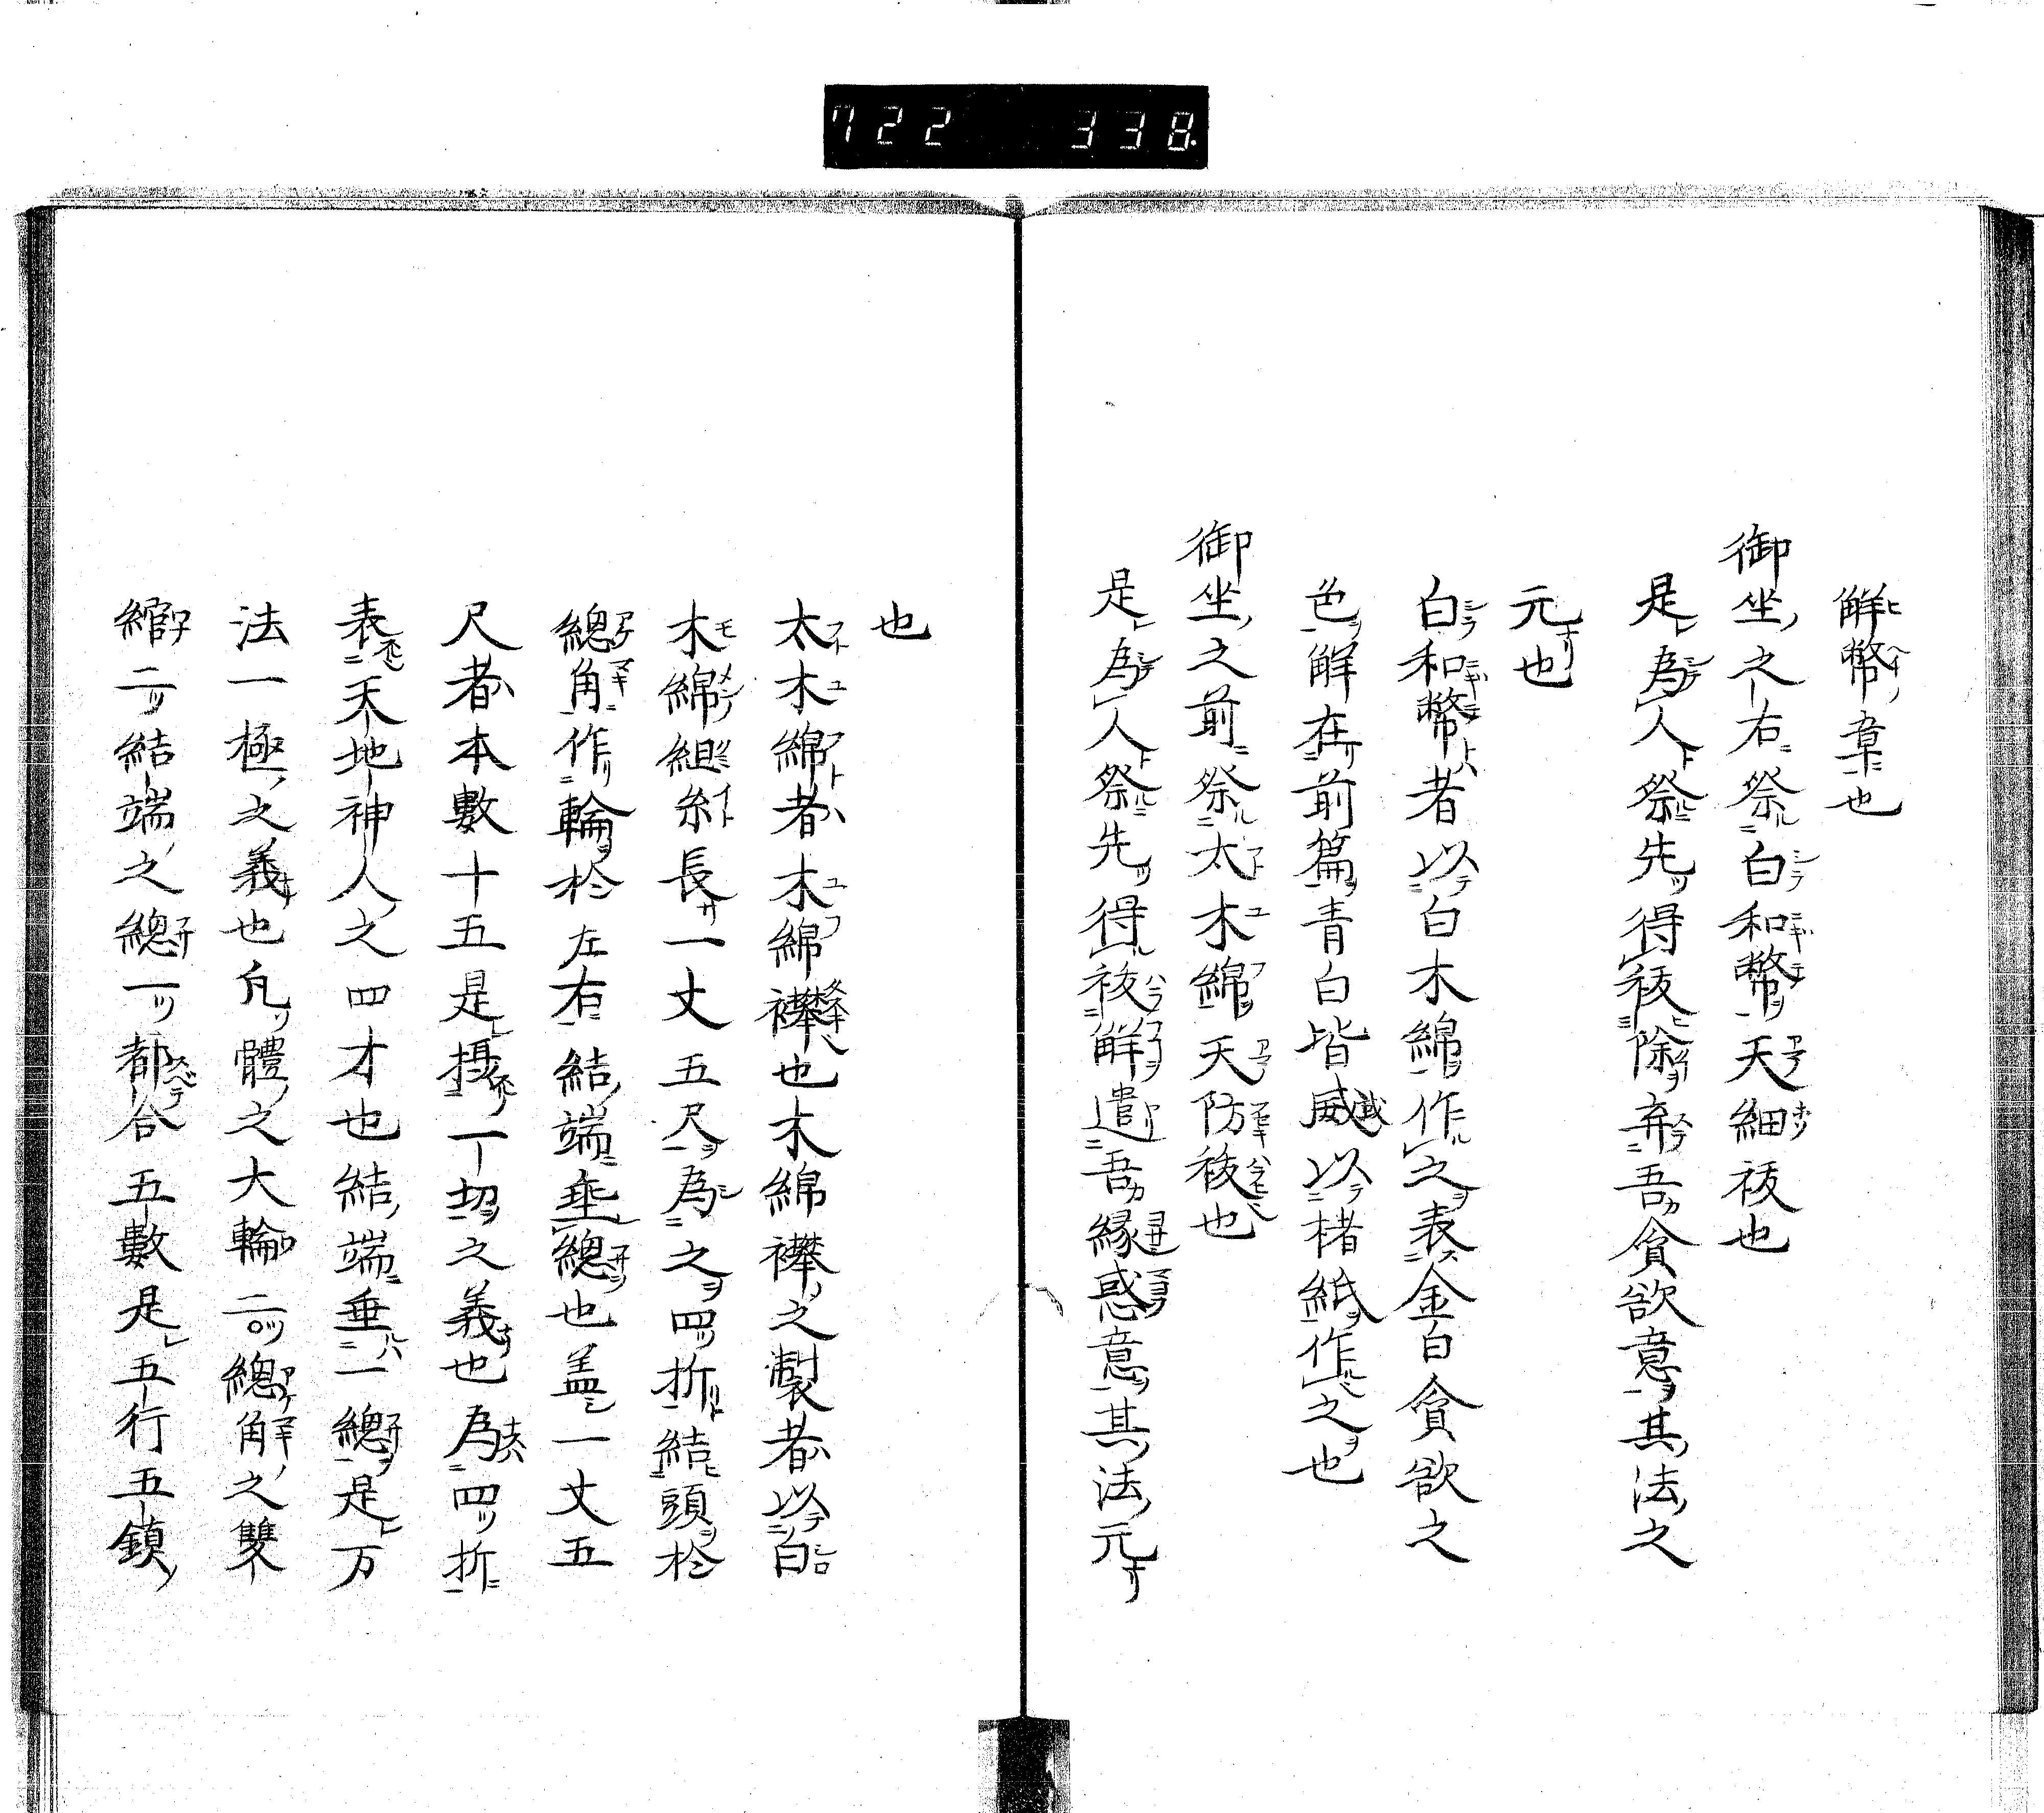 722 338
解幣章也
御坐之右祭白和幣天細祓也
是為人祭先得祓除弃吾貪欲意其法之
元也
白和幣者以白木綿作之表金白貪欲之
色解在前篇青白皆威以楮紙作之也
御坐之前祭太木綿天防祓也
是為人祭先得祓解遣吾縁惑意其法元
也
太木綿者木綿襷也木綿襷之製者以白
木綿組糸長一丈五尺為之四折結頭於
總角作輪於左右結端垂總也盖一丈五
尺者本數十五是摄一切之義也為四折
表天地神人之四才也結端垂一總是万
法一極之義也凡體之大輪二總角之雙
綰二結端之總一都合五數是五行五鎮